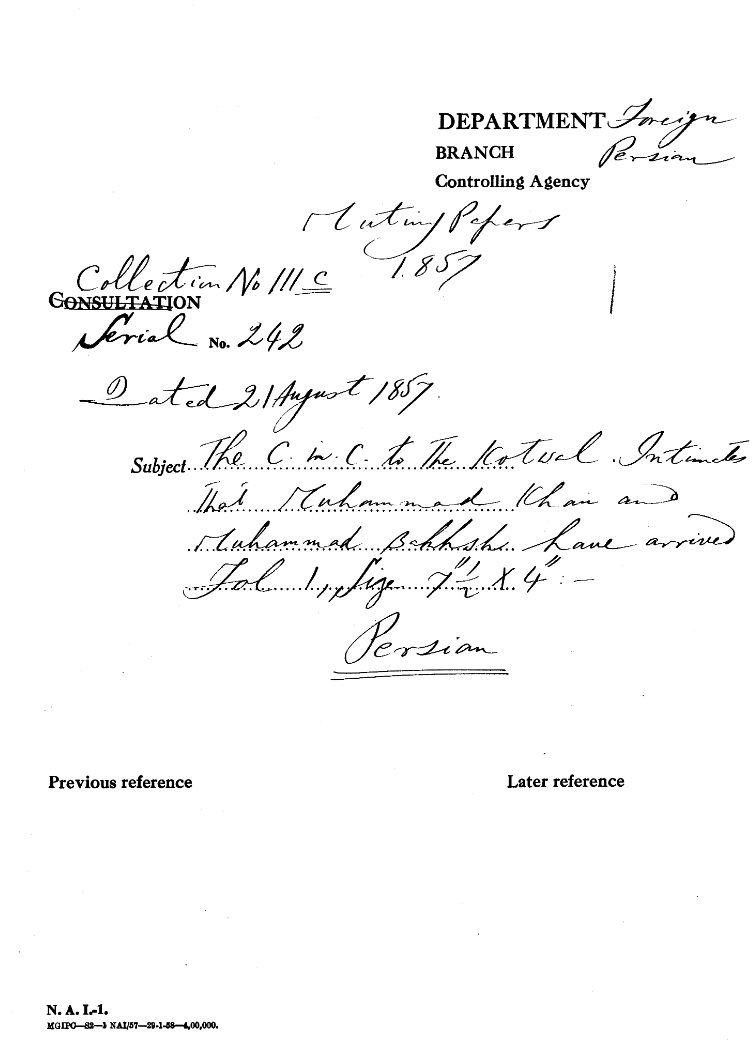 DEPARTMENT Foreign
BRANCH Persian
Controlling Agency
Mutiny Papers
1857
Collection No III C
CONSULTATION
Serial No. 242
Dated 21 August 1857.
Subject The C. in. C. to the Kotwal. Intimates
that Muhammad Khan and
Muhammad Bakhsh have arrived
Fol 1, Size 7"½ X 4" : —
Persian
Previous reference Later reference
N. A. I.-1.
MGIPC—S2—3 NAI/57—29-1-58—4,00,000.